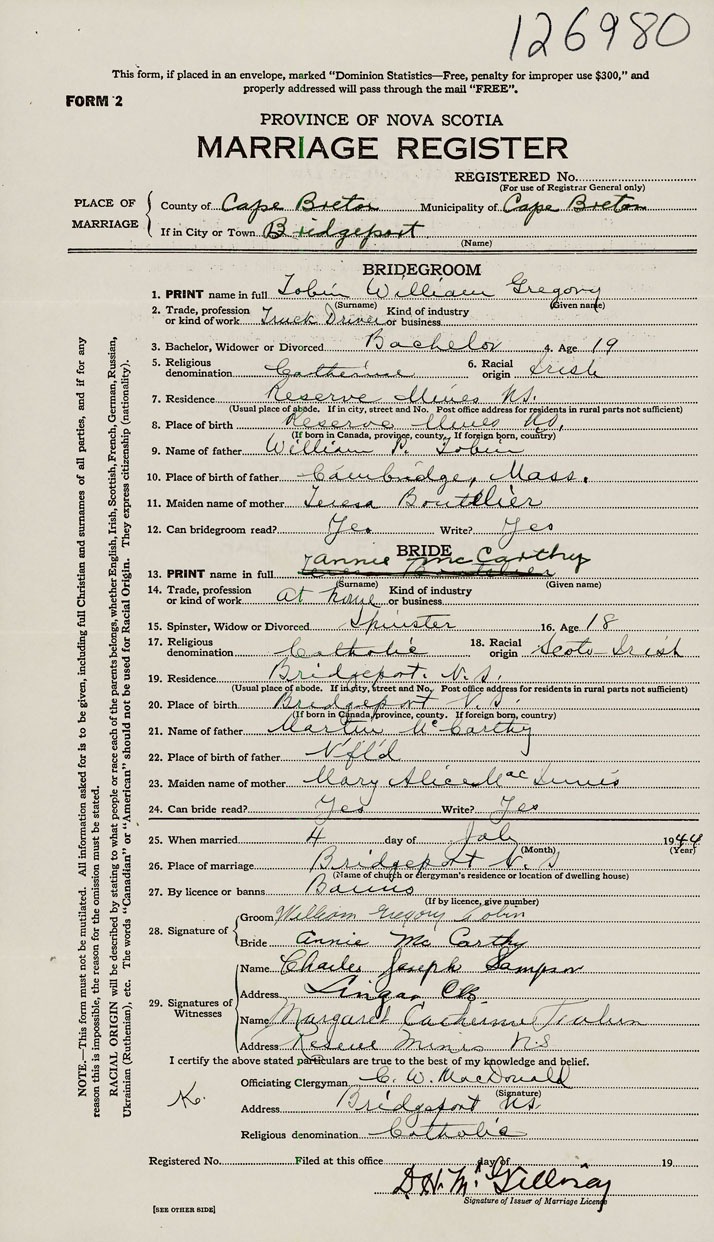 126980
This form, if placed in an envelope, marked "Dominion Statistics—Free, penalty for improper use $300," and
properly addressed will pass through the mail "FREE".
FORM 2
PROVINCE OF NOVA SCOTIA
MARRIAGE REGISTER
REGISTERED No.
(For use of Registrar General only)
PLACE OF MARRIAGE
County of Cape Breton Municipality of Cape Breton
If in City or Town Bridgeport
(Name)
BRIDEGROOM
1. PRINT name in full Tobin William Gregory
(Surname) (Given name)
2. Trade, profession or kind of work Truck Driver Kind of industry or business
3. Bachelor, Widower or Divorced Bachelor 4. Age 19
5. Religious denomination Catholic 6. Racial origin Irish
7. Residence Reserve Mines N.S.
(Usual place of abode. If in city, street and No. Post office address for residents in rural parts not sufficient)
8. Place of birth Reserve Mines N.S.
(If born in Canada, province, county, If foreign born, country)
9. Name of father William P. Tobin
10. Place of birth of father Cambridge, Mass.
11. Maiden name of mother Teresa Boutilier
12. Can bridegroom read? Yes Write? Yes
BRIDE
13. PRINT name in full Annie McCarthy
(Surname) (Given name)
14. Trade, profession or kind of work at home Kind of industry or business
15. Spinster, Widow or Divorced Spinster 16. Age 18
17. Religious denomination Catholic 18. Racial origin Scoto Irish
19. Residence Bridgeport. N.S.
(Usual place of abode. If in city, street and No. Post office address for residents in rural parts not sufficient)
20. Place of birth Bridgeport N.S.
(If born in Canada, province, county. If foreign born, country)
21. Name of father Martin McCarthy
22. Place of birth of father N'f'l'd
23. Maiden name of mother Mary Alice MacInnis
24. Can bride read? Yes Write? Yes
25. When married 4 day of July 1944
(Month) (Year)
26. Place of marriage Bridgeport N.S
(Name of church or clergyman's residence or location of dwelling house)
27. By licence or banns Banns
(If by licence, give number)
28. Signature of
Groom William Gregory Tobin
Bride Annie McCarthy
29. Signatures of Witnesses
Name Charles Joseph Sampson
Address Lingan
Name Margaret Catherine Tobin
Address Reserve Mines N.S
I certify the above stated particulars are true to the best of my knowledge and belief.
Officiating Clergyman C. W. MacDonald
(Signature)
Address Bridgeport N.S.
Religious denomination Catholic
Registered No. Filed at this office day of 19
D.H. McGillivray
Signature of Issuer of Marriage Licence
[SEE OTHER SIDE]
NOTE.—This form must not be mutilated. All information asked for is to be given, including full Christian and surnames of all parties, and if for any
reason this is impossible, the reason for the omission must be stated.
RACIAL ORIGIN will be described by stating to what people or race each of the parents belongs, whether English, Irish, Scottish, French, German, Russian,
Ukrainian (Ruthenian), etc. The words "Canadian" or "American" should not be used for Racial Origin. They express citizenship (nationality).